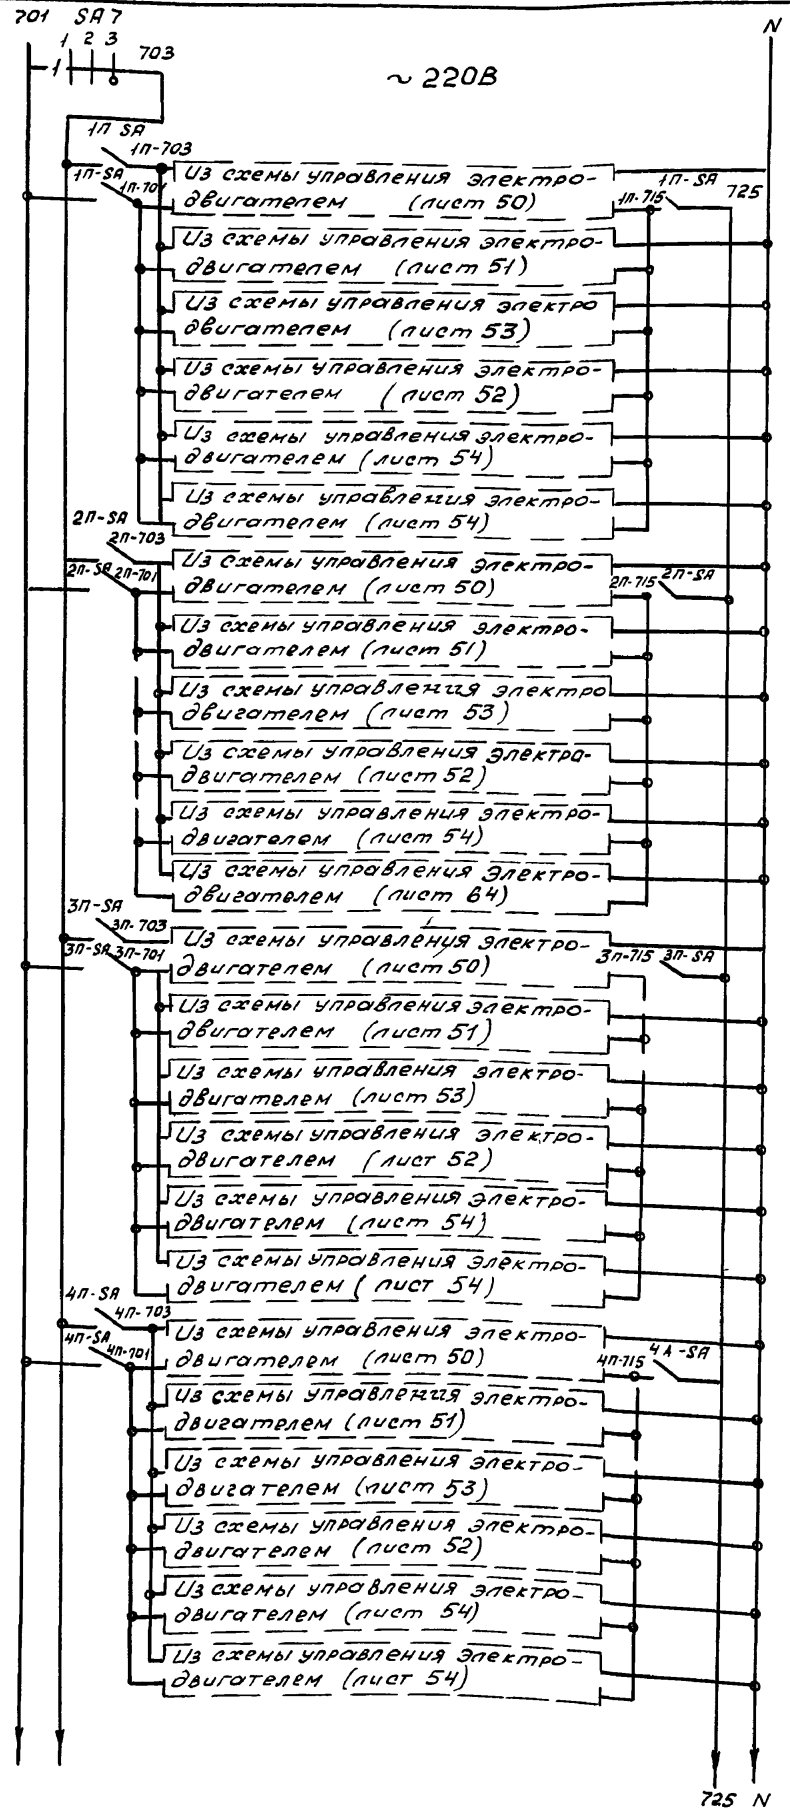 701 SA7 N
1 2 3
1 703
~ 220В
1П SA
1П-703
Из схемы управления электро-
1П-SA 1П-701 1П-715 1П-SA 725
двигателем (лист 50)
Из схемы управления электро-
двигателем (лист 51)
Из схемы управления электро
двигателем (лист 53)
Из схемы управления электро-
двигателем (лист 52)
Из схемы управления электро-
двигателем (лист 54)
Из схемы управления электро-
двигателем (лист 54)
2П-SA
2П-703
Из схемы управления электро-
2П-SA 2П-701 2П-715 2П-SA
двигателем (лист 50)
Из схемы управления электро-
двигателем (лист 51)
Из схемы управления электро
двигателем (лист 53)
Из схемы управления электро-
двигателем (лист 52)
Из схемы управления электро-
двигателем (лист 54)
Из схемы управления электро-
двигателем (лист 64)
3П-SA
3П-703
Из схемы управления электро-
3П-SA 3П-701 3П-715 3П-SA
двигателем (лист 50)
Из схемы управления электро-
двигателем (лист 51)
Из схемы управления электро-
двигателем (лист 53)
Из схемы управления электро-
двигателем (лист 52)
Из схемы управления электро-
двигателем (лист 54)
Из схемы управления электро-
двигателем (лист 54)
4П-SA
4П-703
Из схемы управления электро-
4П-SA 4П-701 4П-715 4А-SA
двигателем (лист 50)
Из схемы управления электро-
двигателем (лист 51)
Из схемы управления электро-
двигателем (лист 53)
Из схемы управления электро-
двигателем (лист 52)
Из схемы управления электро-
двигателем (лист 54)
Из схемы управления электро-
двигателем (лист 54)
725 N